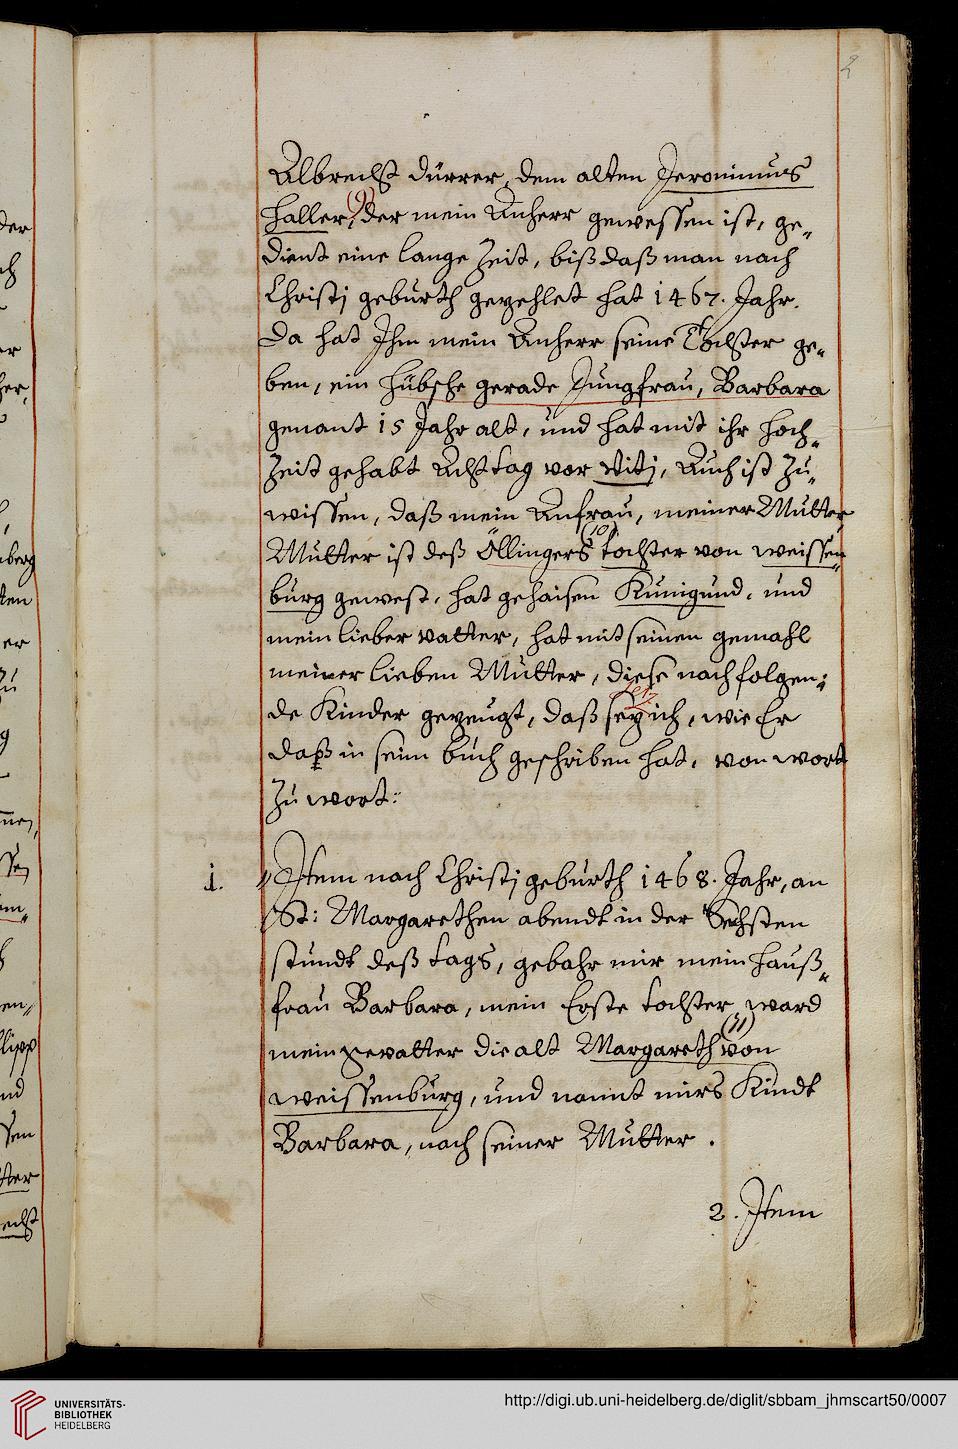 2
Albrecht dürrer, dem alten Jeronimus
Haller, (9) der mein Anherr gewessen ist, ge„
dient eine lange Zeit, biß daß man nach
Christj geburth gezehlet hat 1467. Jahr.
Da hat Ihm mein Anherr seine Tochter ge„
ben, ein hübsche gerade Jungfrau, Barbara
genant 15 Jahr alt, und hat mit ihr hoch„
Zeit gehabt Acht tag vor Vitj, Auch ist zu„
wissen, daß mein Anfrau, meiner Mutter
Mutter ist deß Öllingers (10) tochter von weissen„
burg gewest, hat gehaisen Kunigund, und
mein lieber vatter, hat mit seinen gemahl
meiner lieben Mutter, diese nachfolgen„
de Kinder gezeugt, daß sez ich, wie Er
daß in seim buch geschriben hat, von wort
zu wort:
1. Item nach Christj geburth 1468. Jahr, an
St: Margarethen abendt in der Sechsten
stundt deß tags, gebahr mir mein hauß„
frau Barbara, mein Erste tochter, ward
mein gevatter die alt Margareth (11) von
weissenburg, und nannt mirs Kindt
Barbara, nach seiner Mutter.
2. Item
UNIVERSITÄTS-
BIBLIOTHEK
HEIDELBERG
http://digi.ub.uni-heidelberg.de/diglit/sbbam_jhmscart50/0007